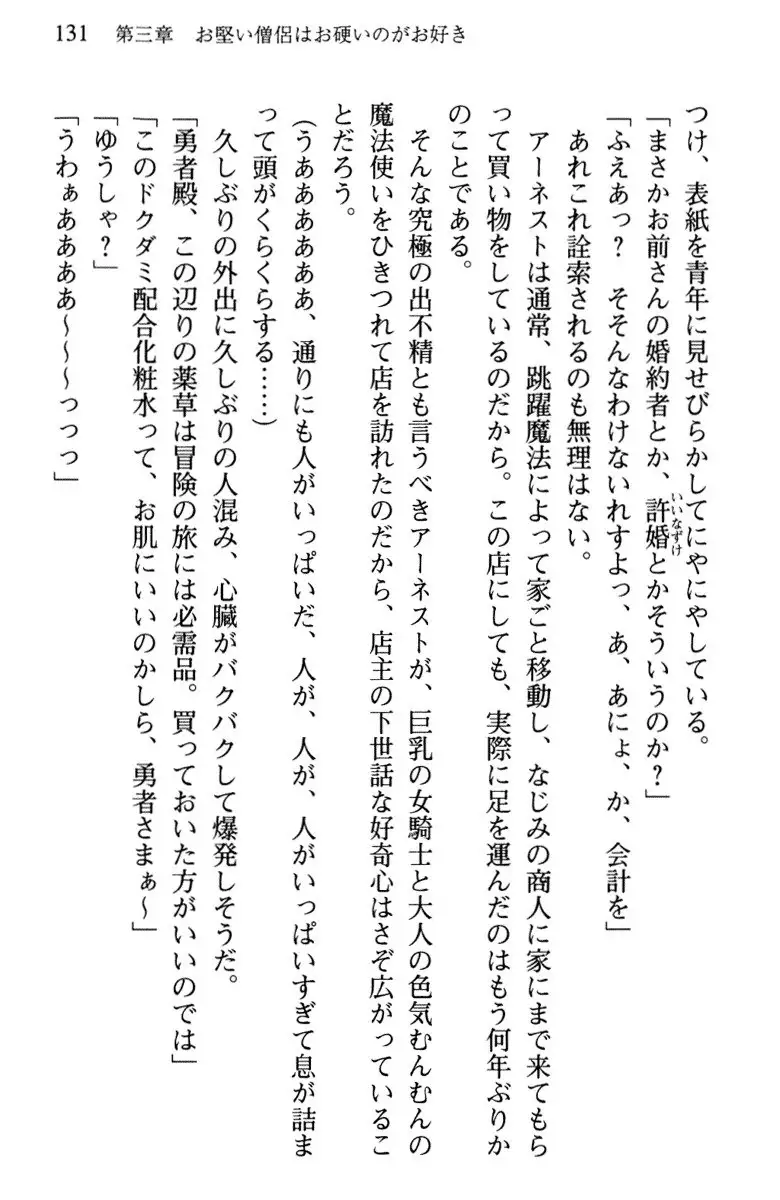 131　第三章　お堅い僧侶はお硬いのがお好き
つけ、表紙を青年に見せびらかしてにやにやしている。
「まさかお前さんの婚約者とか、許婚とかそういうのか？」
いいなずけ
「ふえあっ？　そそんなわけないれすよっ、あ、あにょ、か、会計を」
あれこれ詮索されるのも無理はない。
アーネストは通常、跳躍魔法によって家ごと移動し、なじみの商人に家にまで来てもら
って買い物をしているのだから。この店にしても、実際に足を運んだのはもう何年ぶりか
のことである。
そんな究極の出不精とも言うべきアーネストが、巨乳の女騎士と大人の色気むんむんの
魔法使いをひきつれて店を訪れたのだから、店主の下世話な好奇心はさぞ広がっているこ
とだろう。
（うああああああ、通りにも人がいっぱいだ、人が、人が、人がいっぱいすぎて息が詰ま
って頭がくらくらする……）
久しぶりの外出に久しぶりの人混み、心臓がバクバクして爆発しそうだ。
「勇者殿、この辺りの薬草は冒険の旅には必需品。買っておいた方がいいのでは」
「このドクダミ配合化粧水って、お肌にいいのかしら、勇者さまぁ～」
「ゆうしゃ？」
「うわぁああああ～～～っっっ」